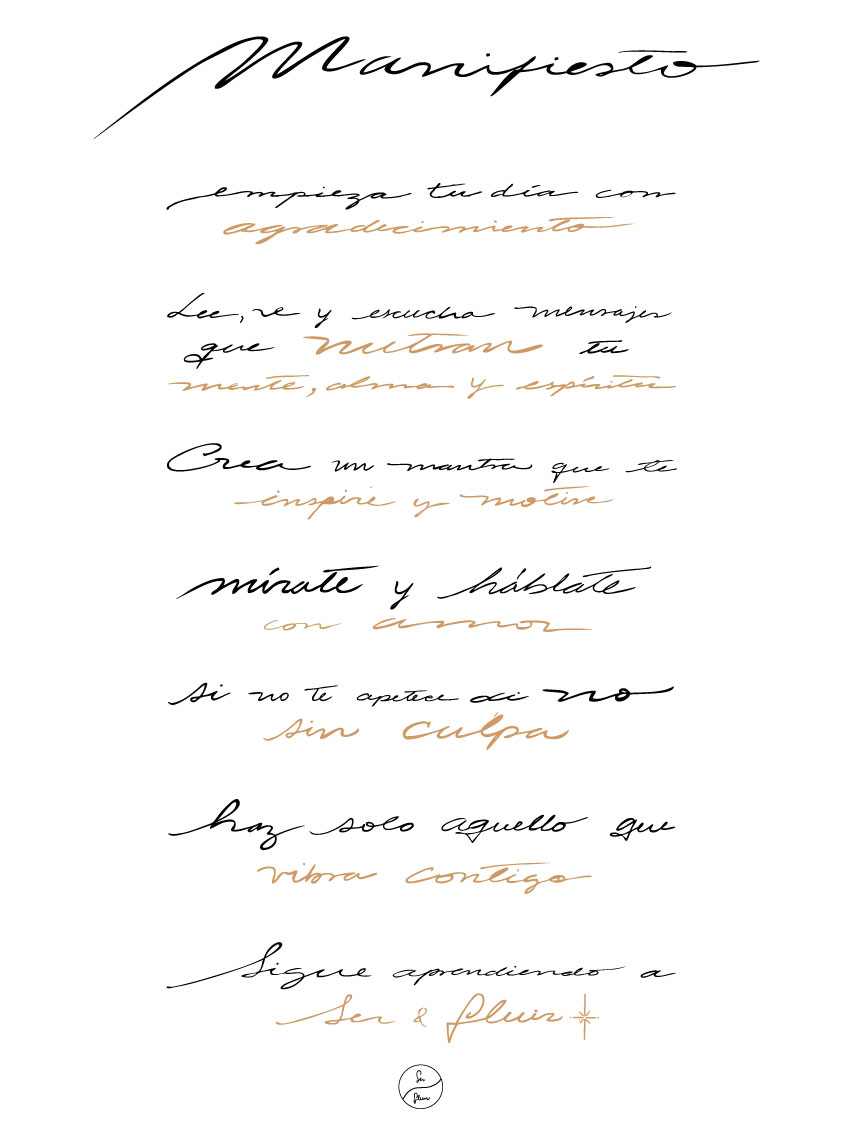 Manifiesto
empieza tu día con
agradecimiento
Lee, ve y escucha mensajes
que nutran tu
mente, alma y espíritu
Crea un mantra que te
inspire y motive
mírate y háblate
con amor
si no te apetece di no
sin culpa
haz solo aquello que
vibra contigo
Sigue aprendiendo a
Ser & fluir
Ser
fluir